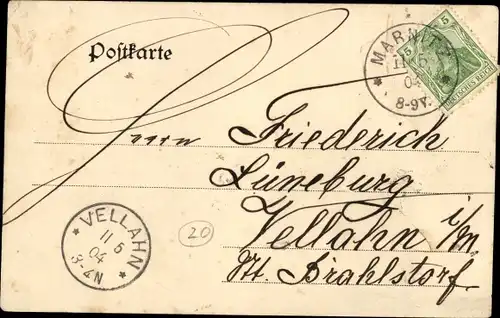 Postkarte
5 5
DEUTSCHES REICH
MARNITZ
11 5
04
8-9V.
Herrn Friederich
Lüneburg
Vellahn i/m
St. Brahlstorf.
VELLAHN
11 5
04
3-4N
20